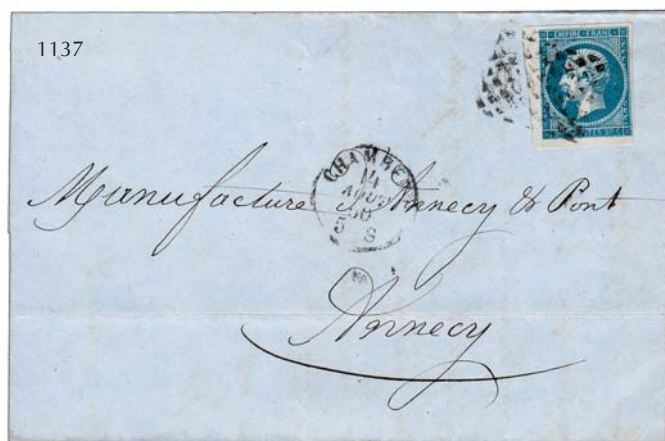 1137
EMPIRE FRANC
CHAMBE
14
AOUT
5 S
Manufacture Annecy & Pont
Annecy